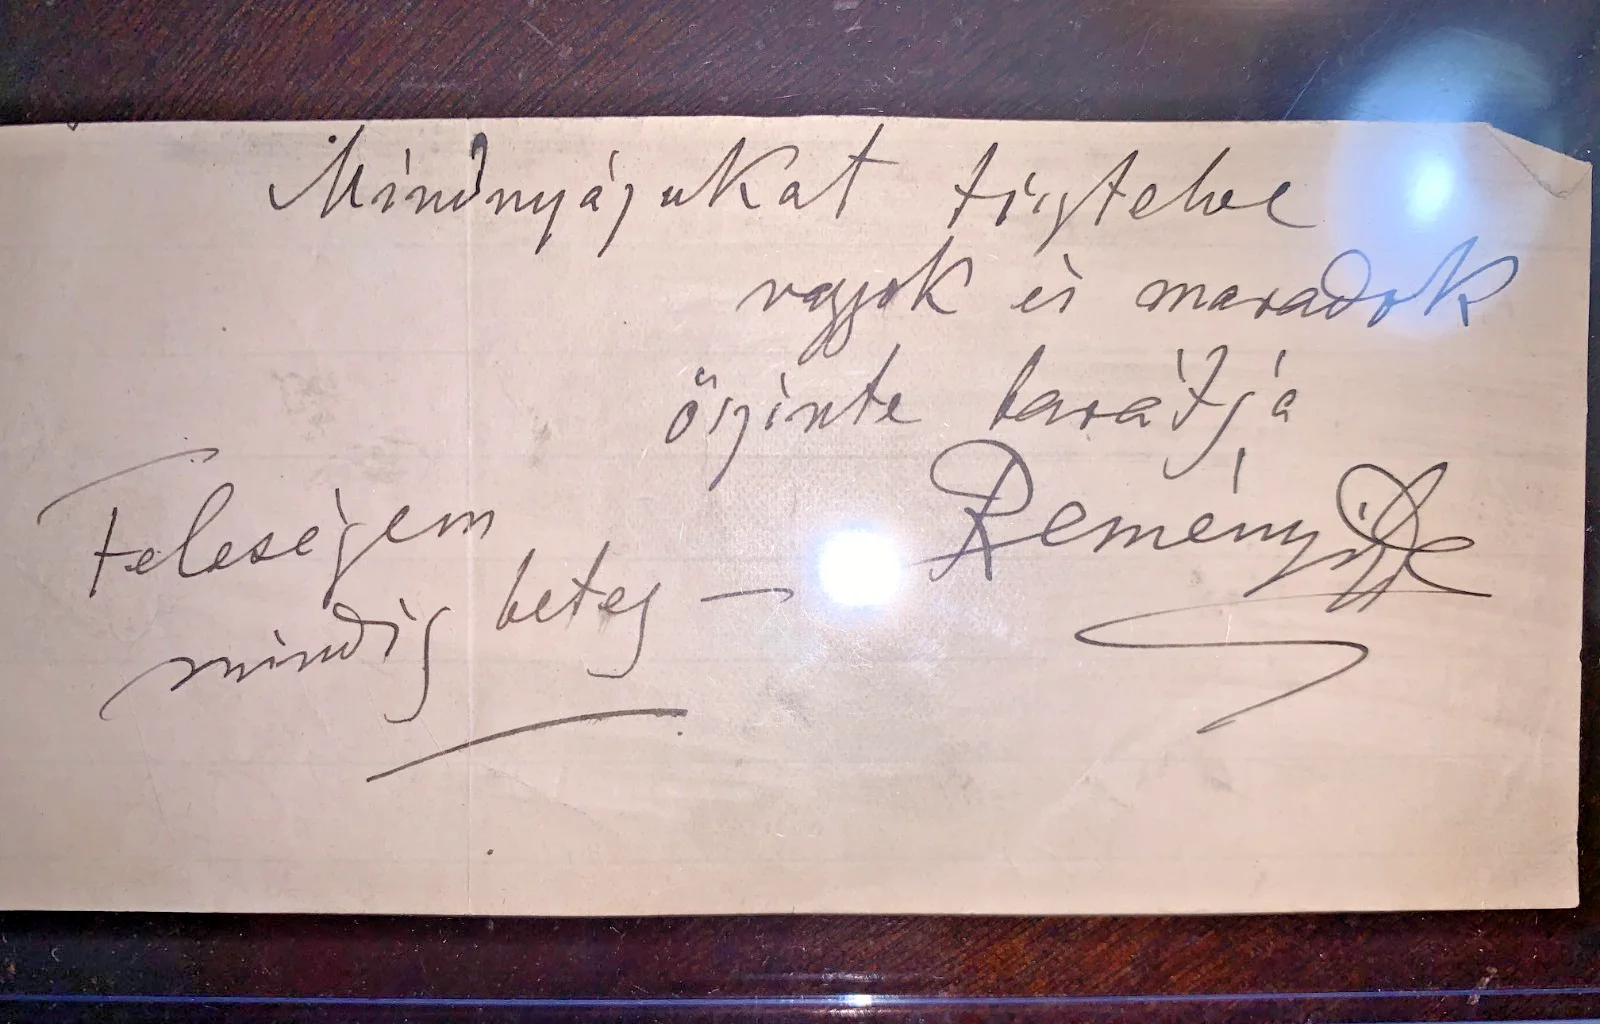 Mindnyájukat tisztelve
vagyok és maradok
őszinte barátja
Reményi Ede
Feleségem
mindig beteg —